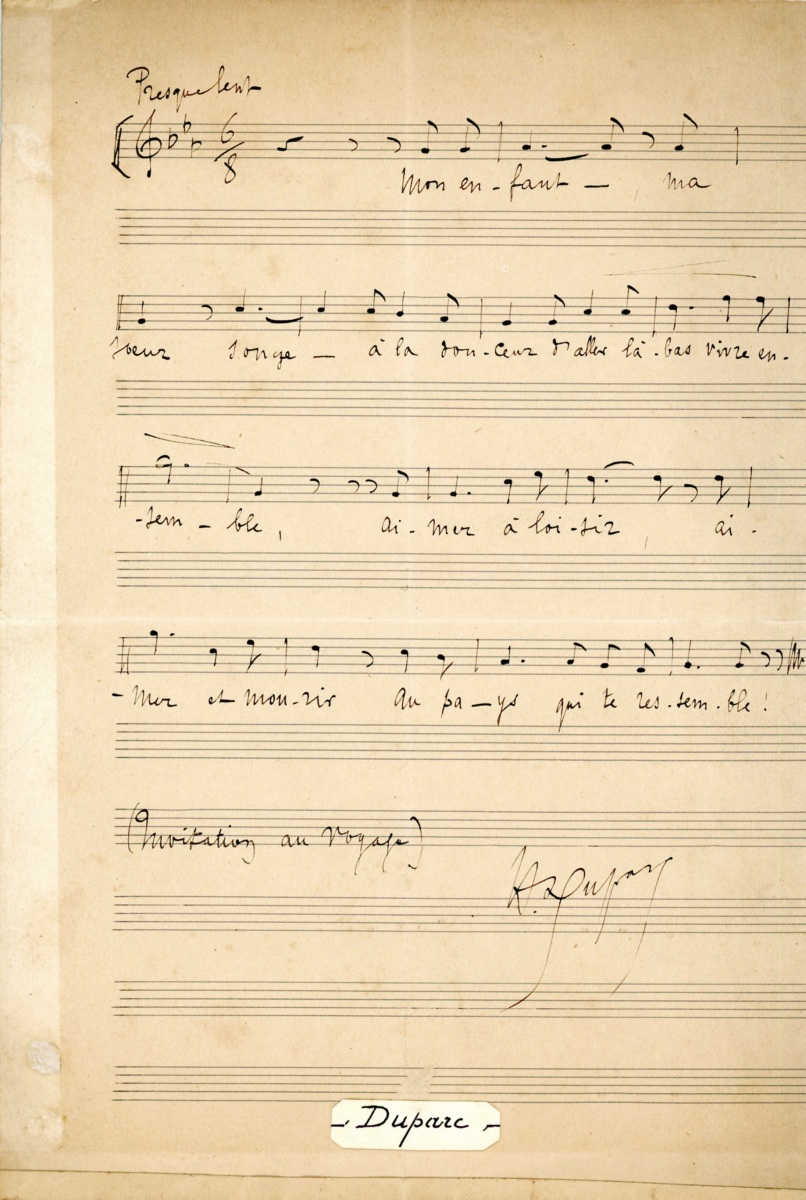 Presque lent
6/8
Mon en-fant — , ma
soeur songe — à la dou-ceur d'aller là-bas vivre en-
-sem-ble, ai-mer à loi-sir, ai-
-mer et mou-rir au pa-ys qui te res-sem-ble!
(Invitation au Voyage)
H. Duparc
- Duparc -